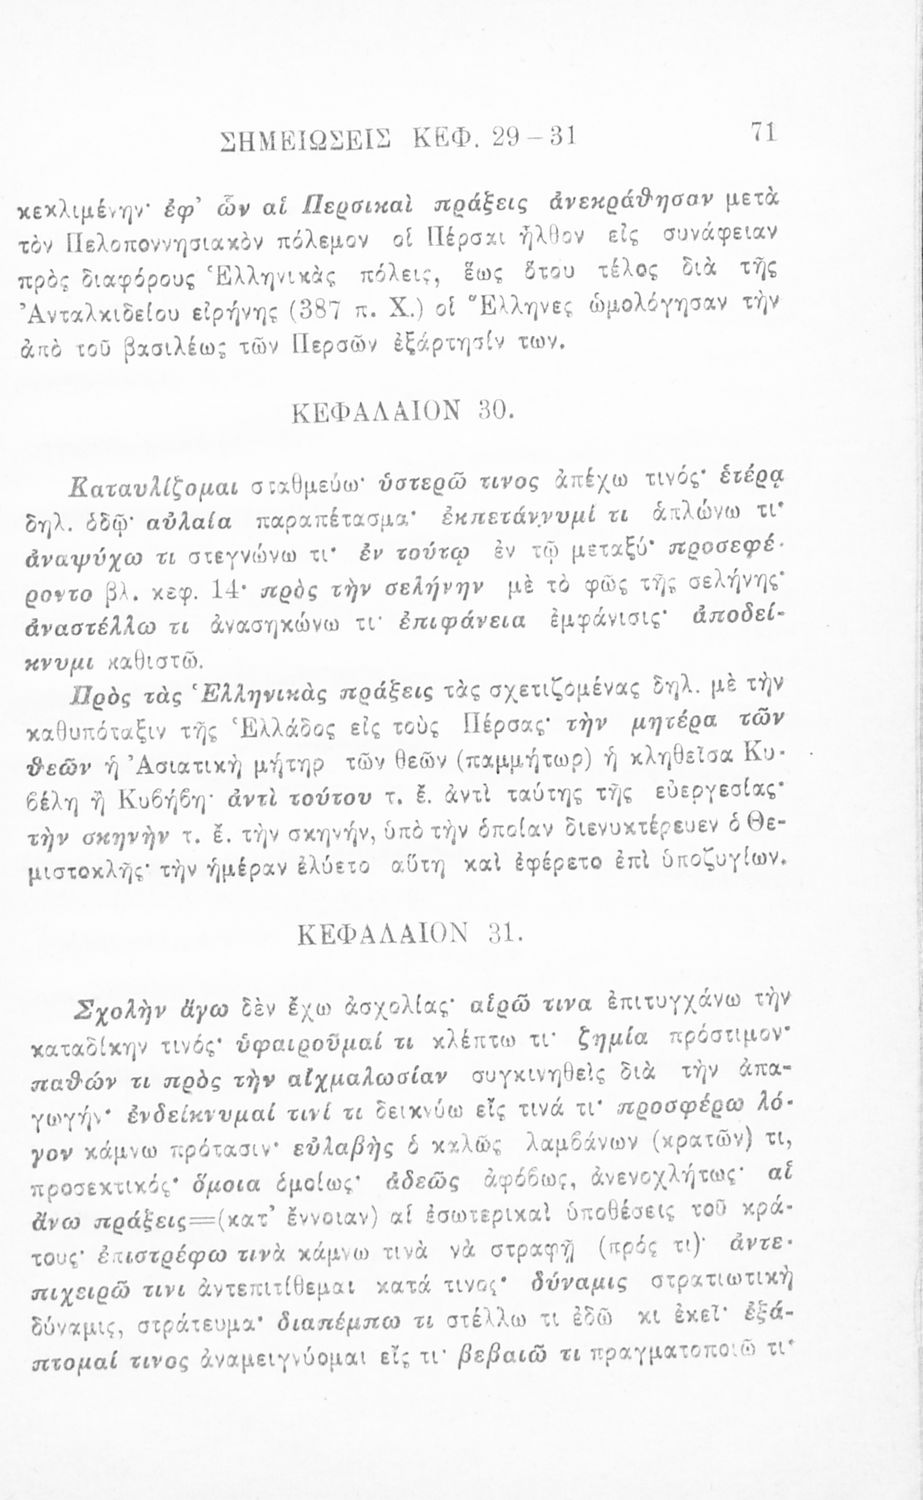 ΣΗΜΕΙΩΣΕΙΣ ΚΕΦ. 29 – 31 71
κεκλιμένην· ἐφ’ ὧν αἱ Περσικαὶ πράξεις ἀνεκράθησαν μετὰ
τὸν Πελοποννησιακὸν πόλεμον οἱ Πέρσαι ἦλθον εἰς συνάφειαν
πρὸς διαφόρους Ἑλληνικὰς πόλεις, ἕως ὅτου τέλος διὰ τῆς
Ἀνταλκιδείου εἰρήνης (387 π. Χ.) οἱ Ἕλληνες ὡμολόγησαν τὴν
ἀπὸ τοῦ βασιλέως τῶν Περσῶν ἐξάρτησίν των.
ΚΕΦΑΛΑΙΟΝ 30.
Καταυλίζομαι σταθμεύω· ὑστερῶ τινος ἀπέχω τινός· ἑτέρᾳ
δηλ. ὁδῷ· αὐλαία παραπέτασμα· ἐκπετάννυμί τι ἁπλώνω τι·
ἀναψύχω τι στεγνώνω τι· ἐν τούτῳ ἐν τῷ μεταξύ· προσεφέ-
ροντο βλ. κεφ. 14· πρὸς τὴν σελήνην μὲ τὸ φῶς τῆς σελήνης·
ἀναστέλλω τι ἀνασηκώνω τι· ἐπιφάνεια ἐμφάνισις· ἀποδεί-
κνυμι καθιστῶ.
Πρὸς τὰς Ἑλληνικὰς πράξεις τὰς σχετιζομένας δηλ. μὲ τὴν
καθυπόταξιν τῆς Ἑλλάδος εἰς τοὺς Πέρσας· τὴν μητέρα τῶν
θεῶν ἡ Ἀσιατικὴ μήτηρ τῶν θεῶν (παμμήτωρ) ἡ κληθεῖσα Κυ-
βέλη ἢ Κυβήβη· ἀντὶ τούτου τ. ἔ. ἀντὶ ταύτης τῆς εὐεργεσίας·
τὴν σκηνὴν τ. ἔ. τὴν σκηνήν, ὑπὸ τὴν ὁποίαν διενυκτέρευεν ὁ Θε-
μιστοκλῆς· τὴν ἡμέραν ἐλύετο αὕτη καὶ ἐφέρετο ἐπὶ ὑποζυγίων.
ΚΕΦΑΛΑΙΟΝ 31.
Σχολὴν ἄγω δὲν ἔχω ἀσχολίας· αἱρῶ τινα ἐπιτυγχάνω τὴν
καταδίκην τινός· ὑφαιροῦμαί τι κλέπτω τι· ζημία πρόστιμον·
παθών τι πρὸς τὴν αἰχμαλωσίαν συγκινηθεὶς διὰ τὴν ἀπα-
γωγήν· ἐνδείκνυμαί τινί τι δεικνύω εἴς τινά τι· προσφέρω λό-
γον κάμνω πρότασιν· εὐλαβὴς ὁ καλῶς λαμβάνων (κρατῶν) τι,
προσεκτικός· ὅμοια ὁμοίως· ἀδεῶς ἀφόβως, ἀνενοχλήτως· αἱ
ἄνω πράξεις=(κατ’ ἔννοιαν) αἱ ἐσωτερικαὶ ὑποθέσεις τοῦ κρά-
τους· ἐπιστρέφω τινὰ κάμνω τινὰ νὰ στραφῇ (πρός τι)· ἀντε-
πιχειρῶ τινι ἀντεπιτίθεμαι κατά τινος· δύναμις στρατιωτικὴ
δύναμις, στράτευμα· διαπέμπω τι στέλλω τι ἐδῶ κι ἐκεῖ· ἐξά-
πτομαί τινος ἀναμειγνύομαι εἴς τι· βεβαιῶ τι πραγματοποιῶ τι·